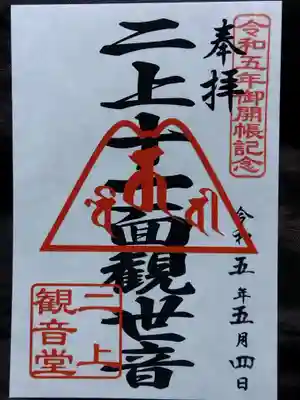 令和五年御開帳記念
奉拝
二上十一面観世音
令和五年五月四日
二上
観音堂